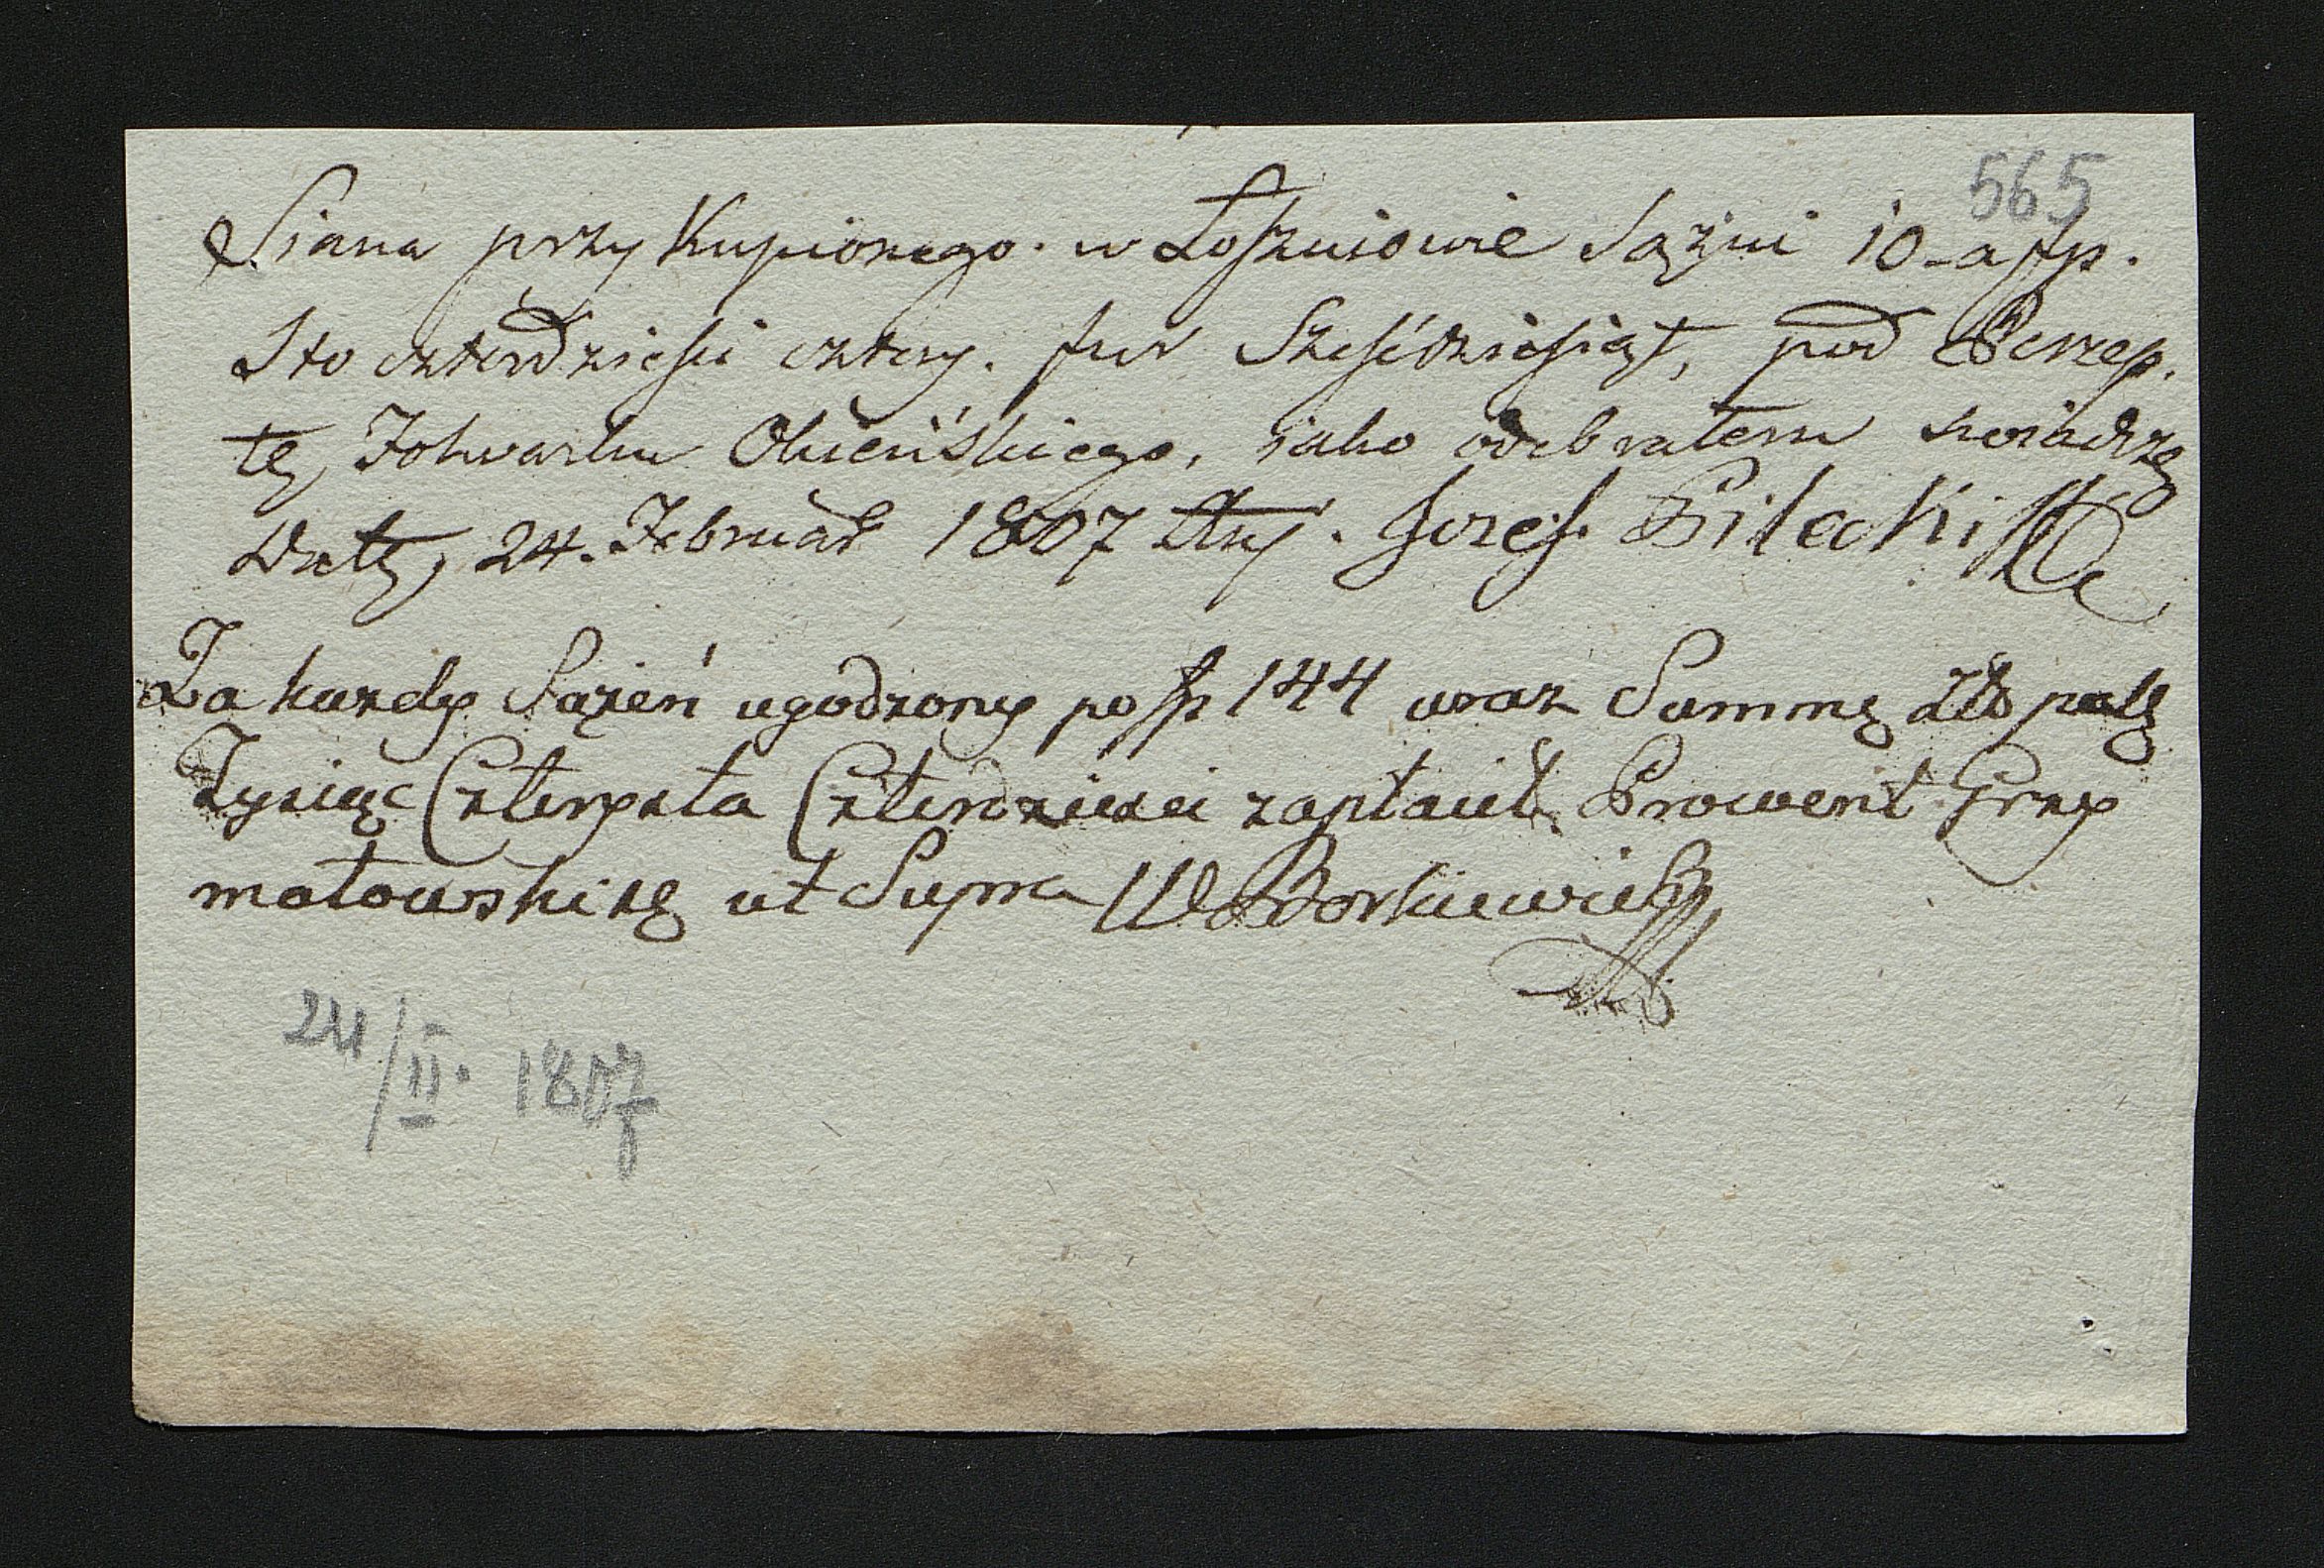 565
Siana przy Kupionego. w Łoszniowie Sążni 10 - a fp.
Sto czterdziesci cztery. fur Szescdziesiąt, pod Percep.
tę Folwarku Okieńskiego, iako odebrałem swiadczę
Datt, 24. Februar 1807 Józef Pilecki
Za kazdy Sążeń ugodzony po fp 144 wraz Summę Zło
Tysiąc Czterysta Czterdziesci zapłacił Prowent Grzy
małowski ut Supra W Borkiewicz
24/II. 1807